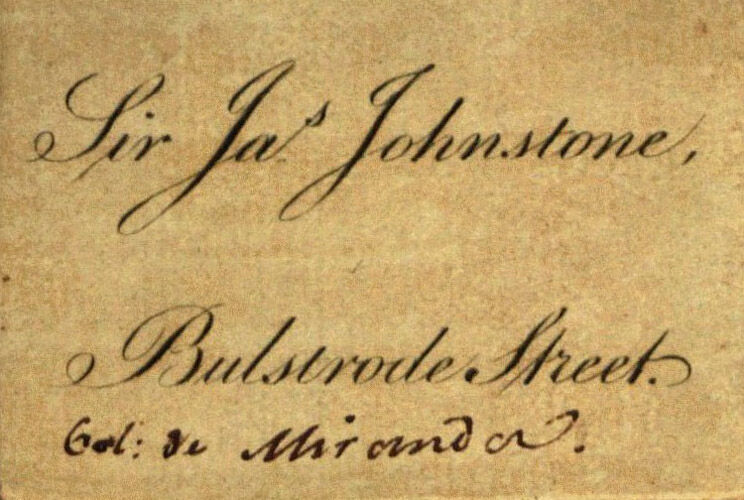 Sir Jas Johnstone,
Bulstrode Street.
Col: de Miranda.